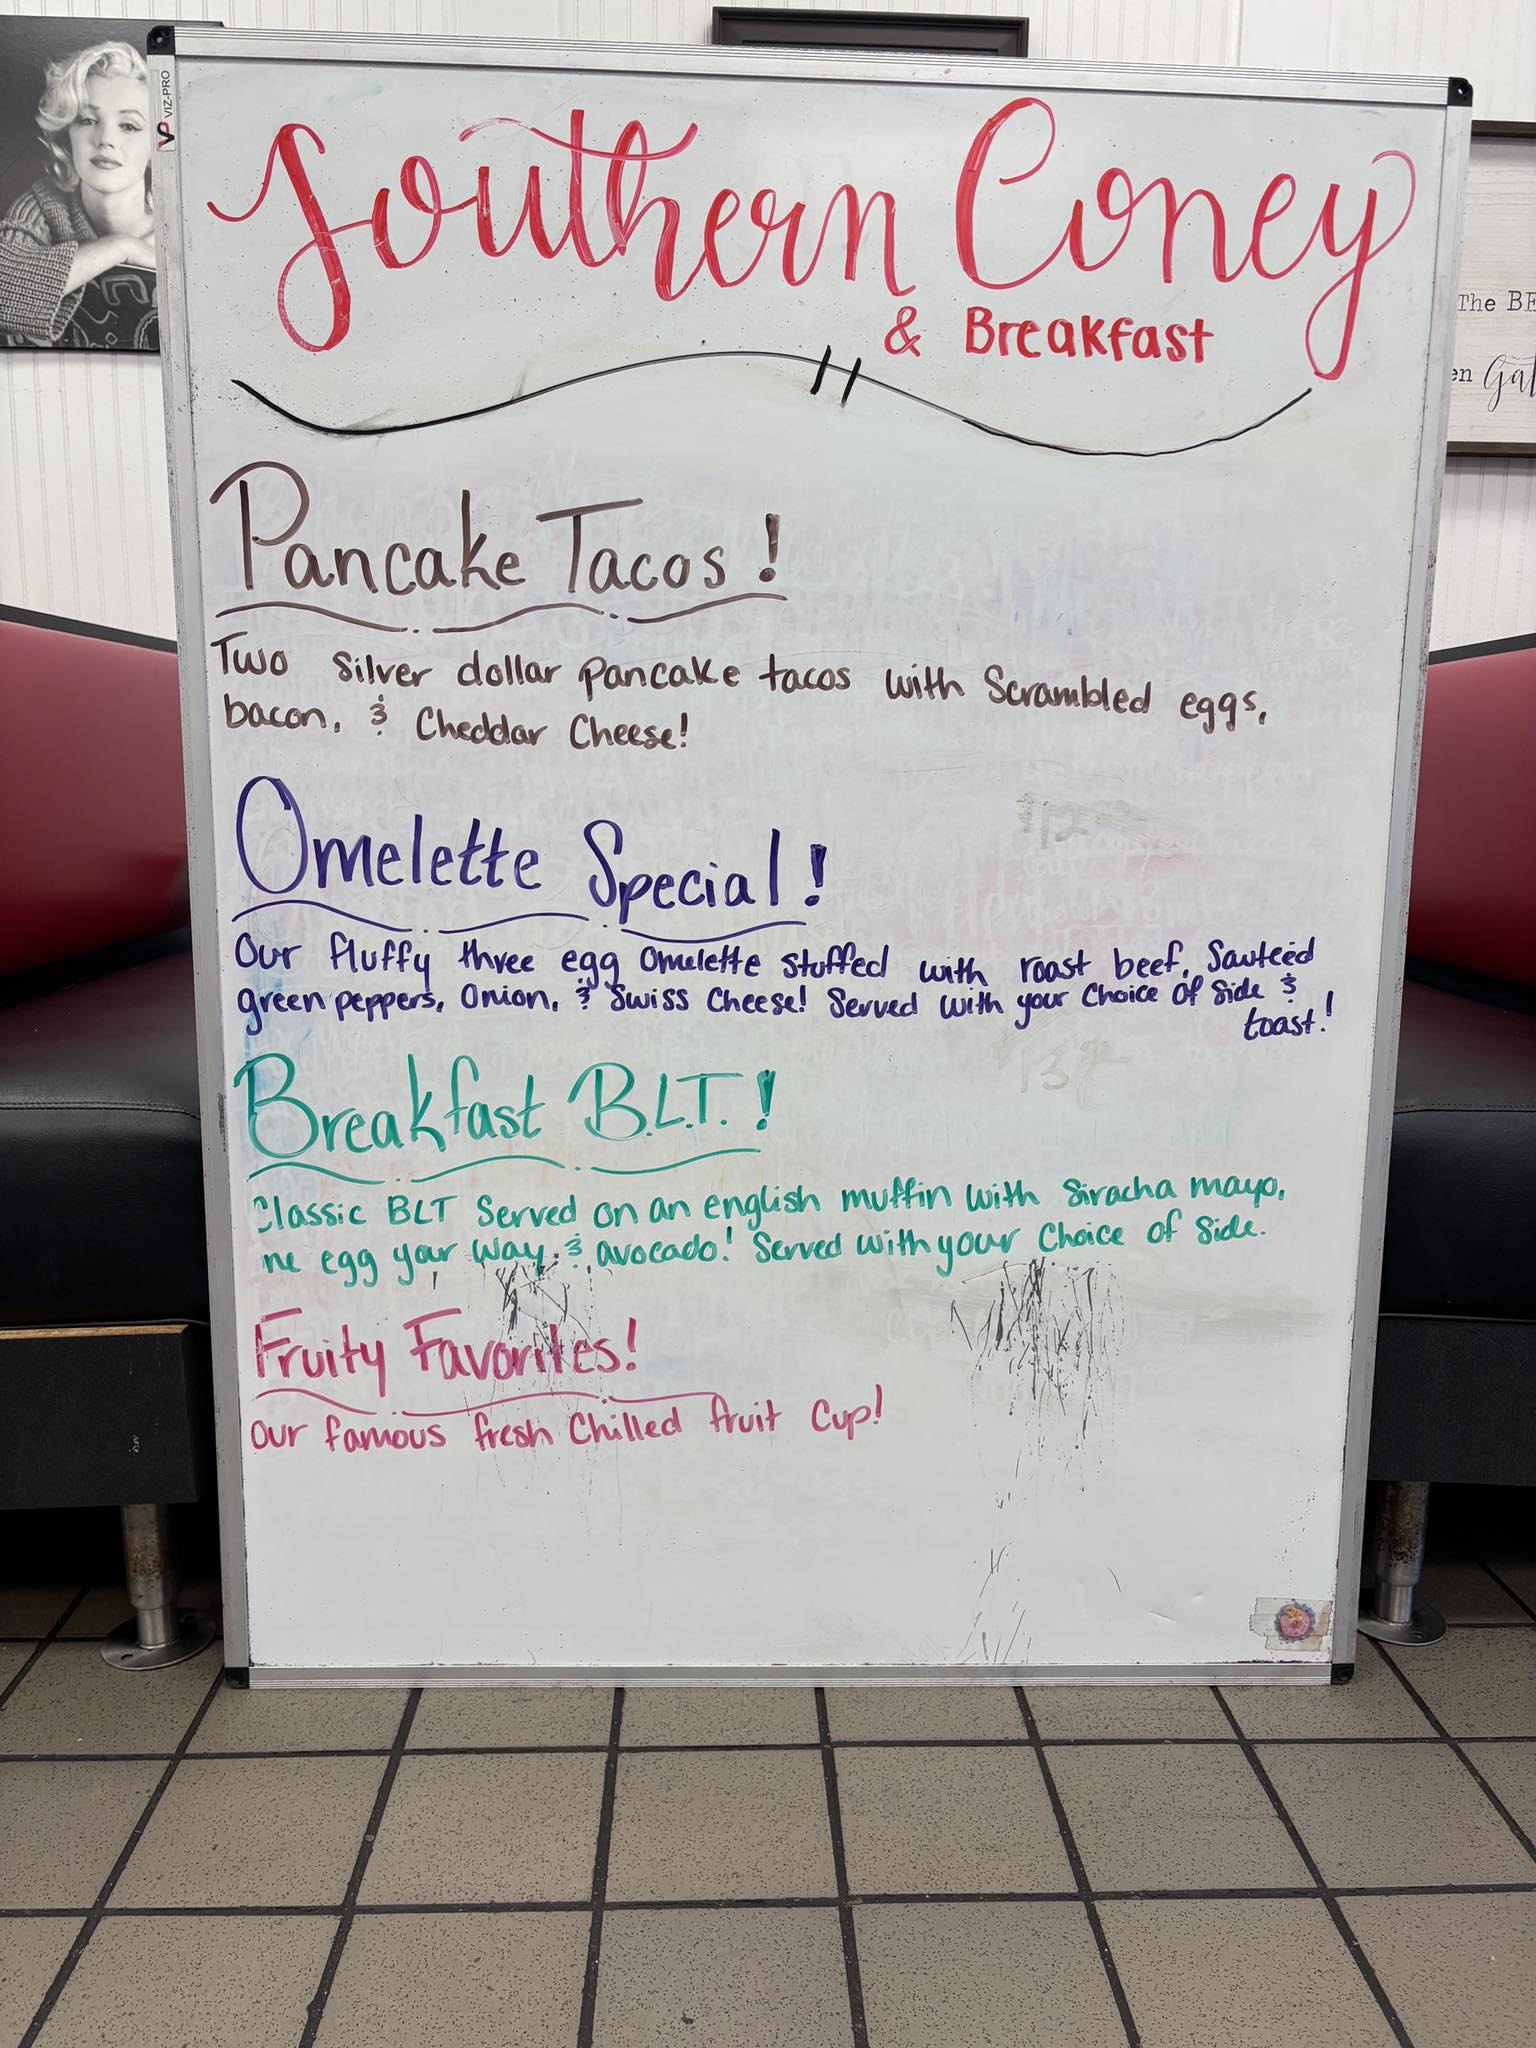 VP VIZ-PRO
Southern Coney
& Breakfast
The BE
en Gat
Pancake Tacos!
Two Silver dollar pancake tacos with Scrambled eggs,
bacon, & Cheddar Cheese!
$12
Omelette Special!
Our fluffy three egg Omelette stuffed with roast beef, Sauteéd
green peppers, Onion, & Swiss Cheese! Served with your Choice of Side &
toast!
$13
Breakfast B.L.T.!
Classic BLT Served on an english muffin with Siracha mayo,
ne egg your way, & avocado! Served with your Choice of Side.
Fruity Favorites!
Our famous fresh Chilled fruit Cup!